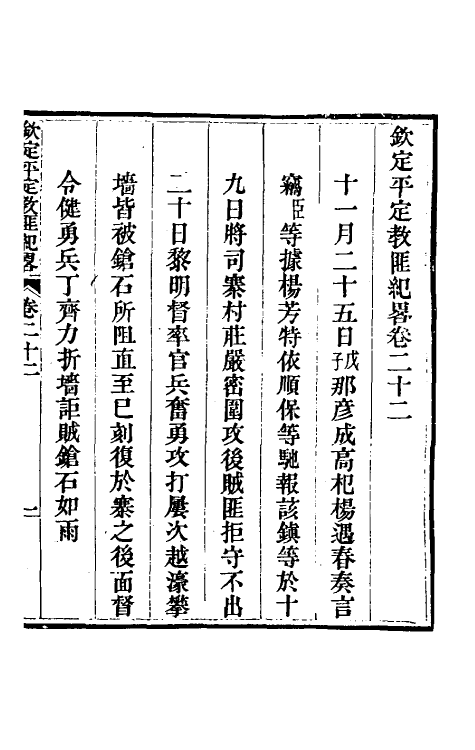 欽定平定教匪紀畧卷二十二
十一月二十五日戊子那彦成高杞楊遇春奏言
竊臣等據楊芳特依順保等馳報該鎮等於十
九日將司寨村莊嚴密圍攻後賊匪拒守不出
二十日黎明督率官兵奮勇攻打屢次越濠攀
墻皆被鎗石所阻直至巳刻復於寨之後面督
令健勇兵丁齊力折墻詎賊鎗石如雨
欽定平定教匪紀畧 卷二十二 一